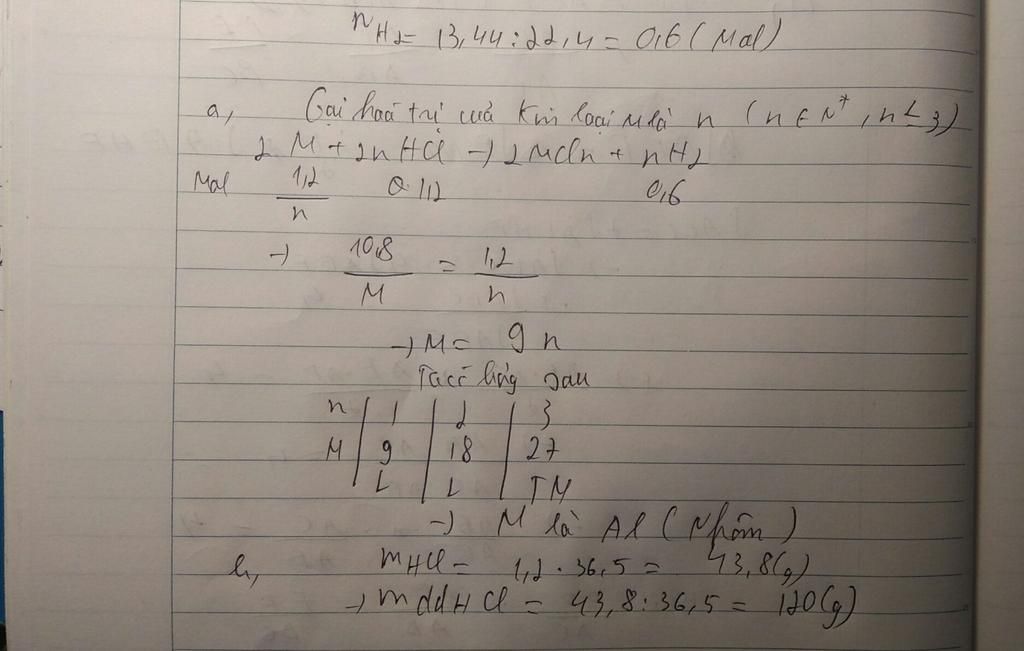 nH2 = 13,44 : 22,4 = 0,6 (Mol)
a, Gọi hoá trị của kim loại M là n (n ∈ N*, n ≤ 3)
2M + 2nHCl → 2MCln + nH2
Mol 1,2/n 1,2 0,6
→ 10,8/M = 1,2/n
→ M = 9n
Ta có bảng sau
n | 1 | 2 | 3
M | 9 | 18 | 27
L | L | TM
→ M là Al (Nhôm)
b, mHCl = 1,2 . 36,5 = 43,8(g)
→ mddHCl = 43,8 : 36,5 = 120(g)